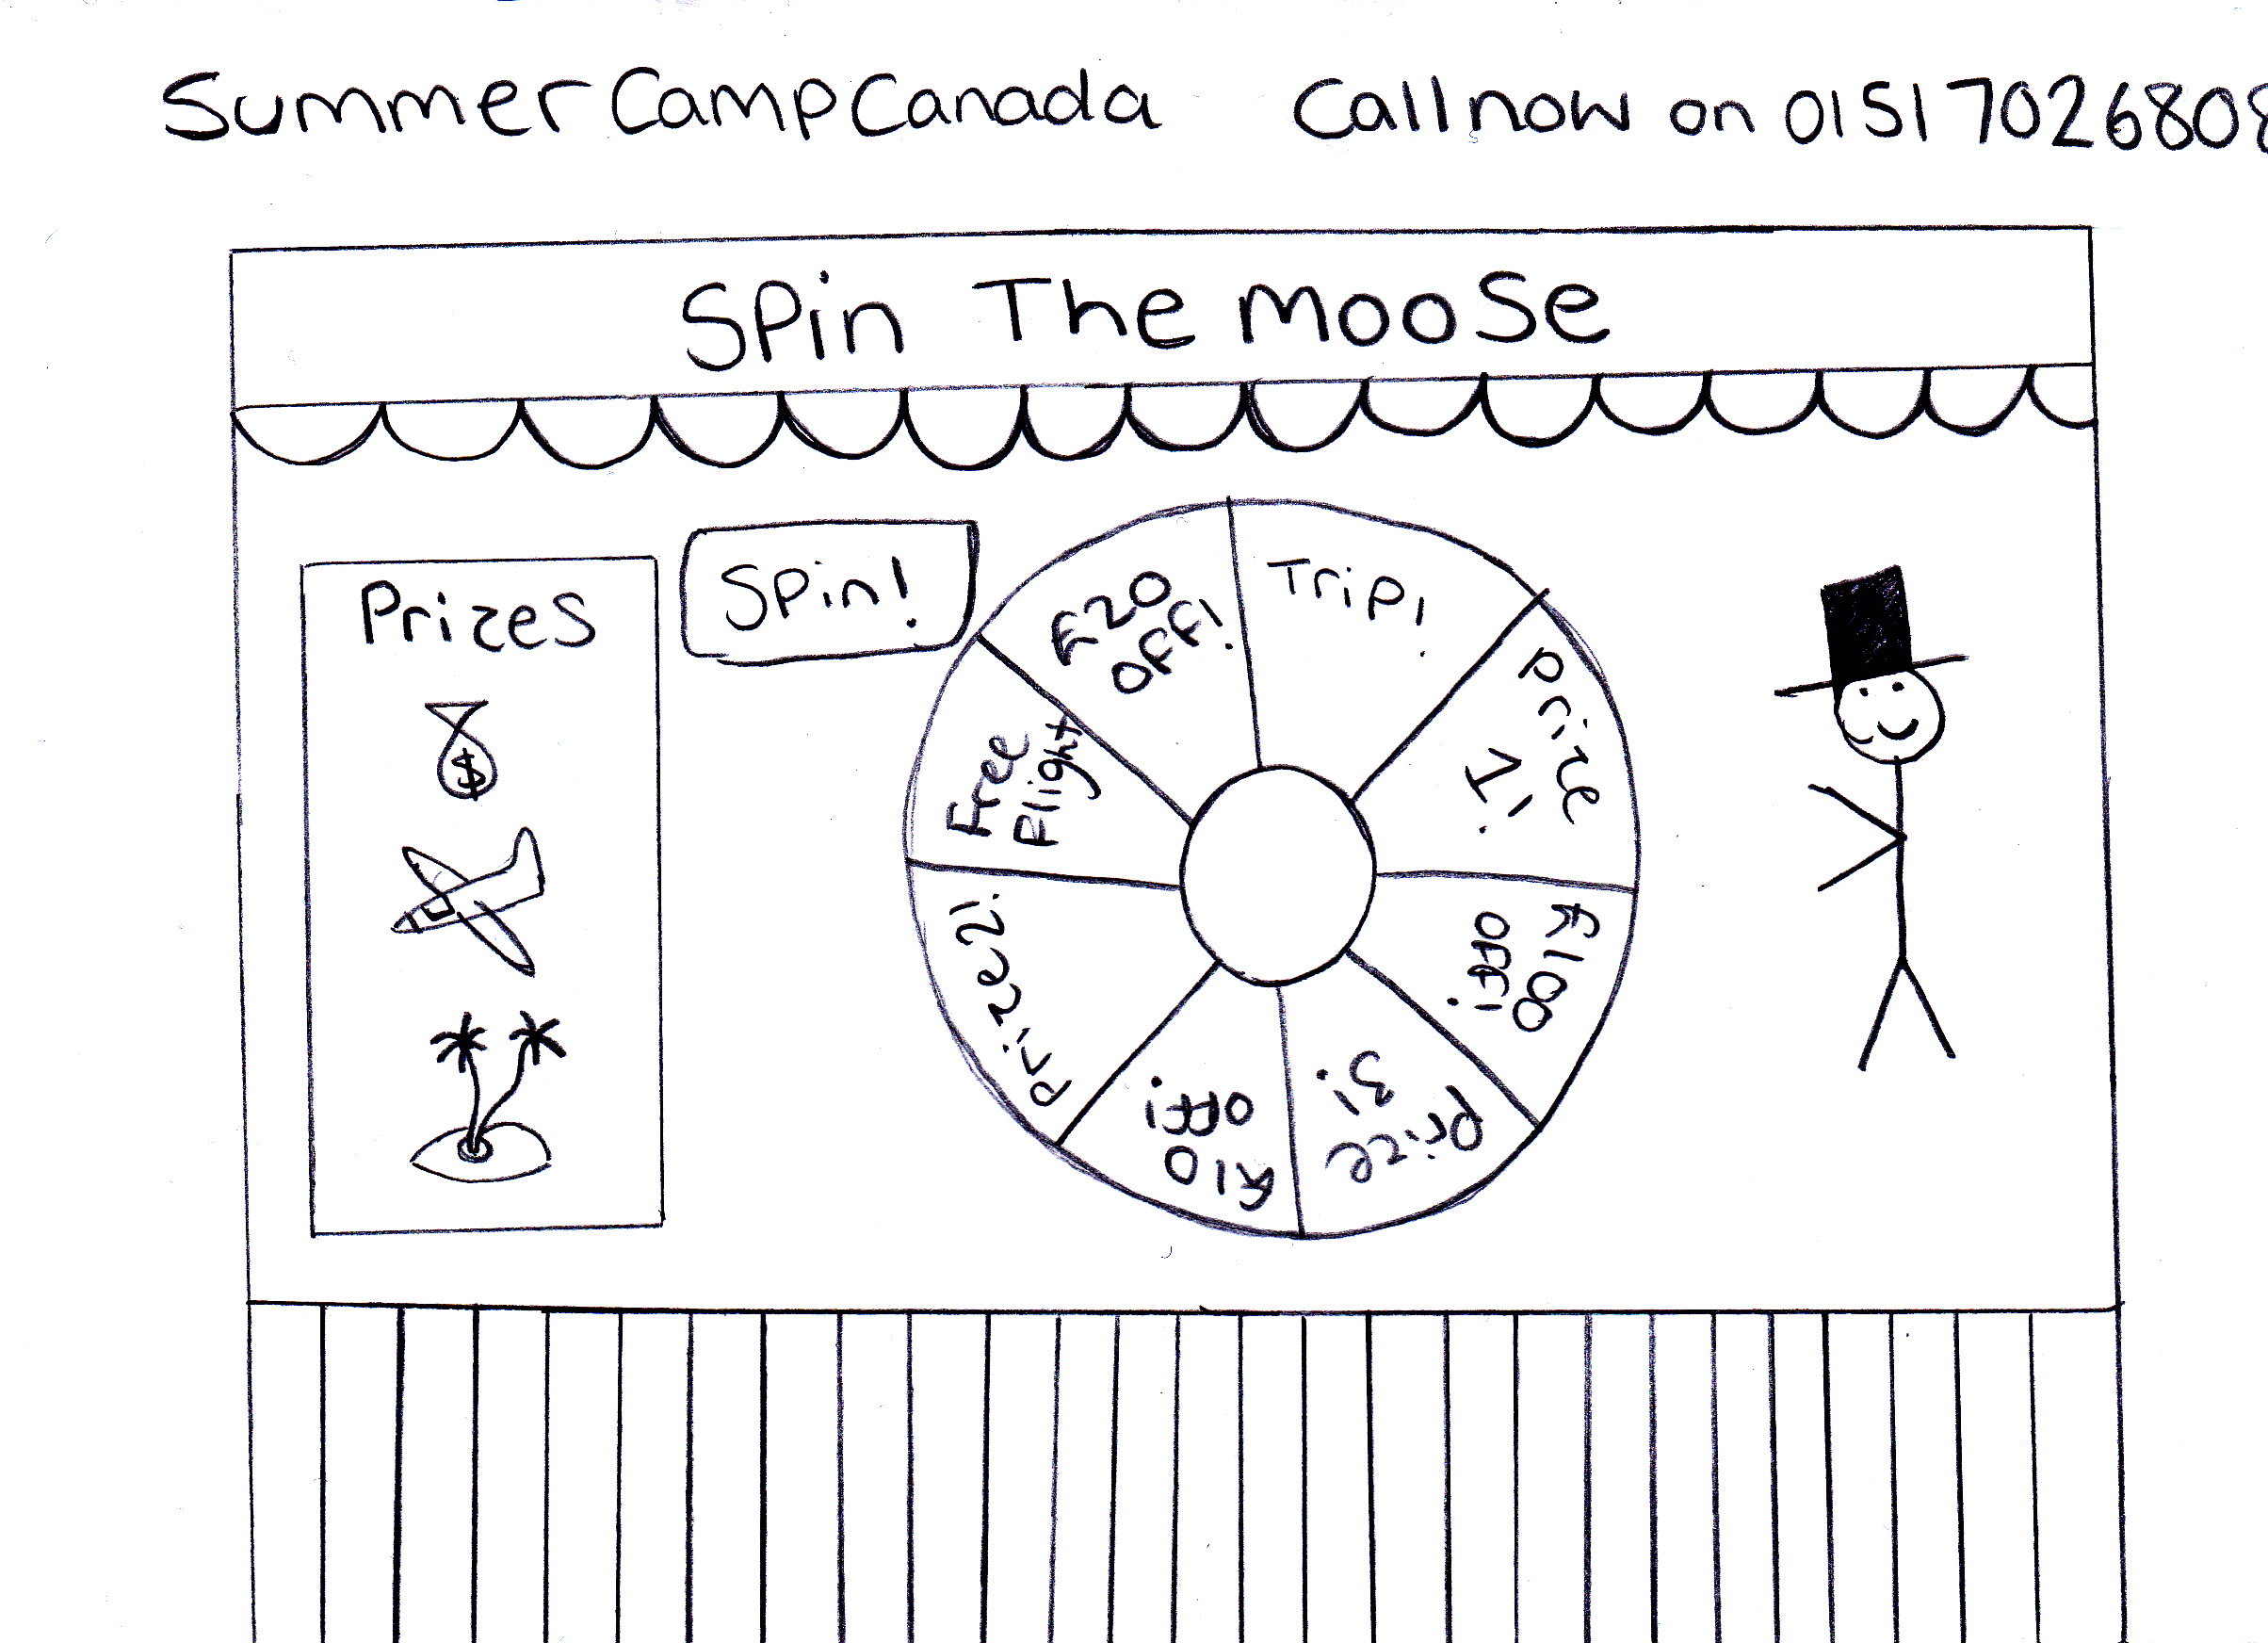 Summer Camp Canada Call now on 0151 7026808
Spin The moose
Prizes
$
Spin!
£20
OFF!
Trip!
Prize
1!
£100
OFF!
Prize
3!
£10
OFF!
Prize 2!
Free
Flight